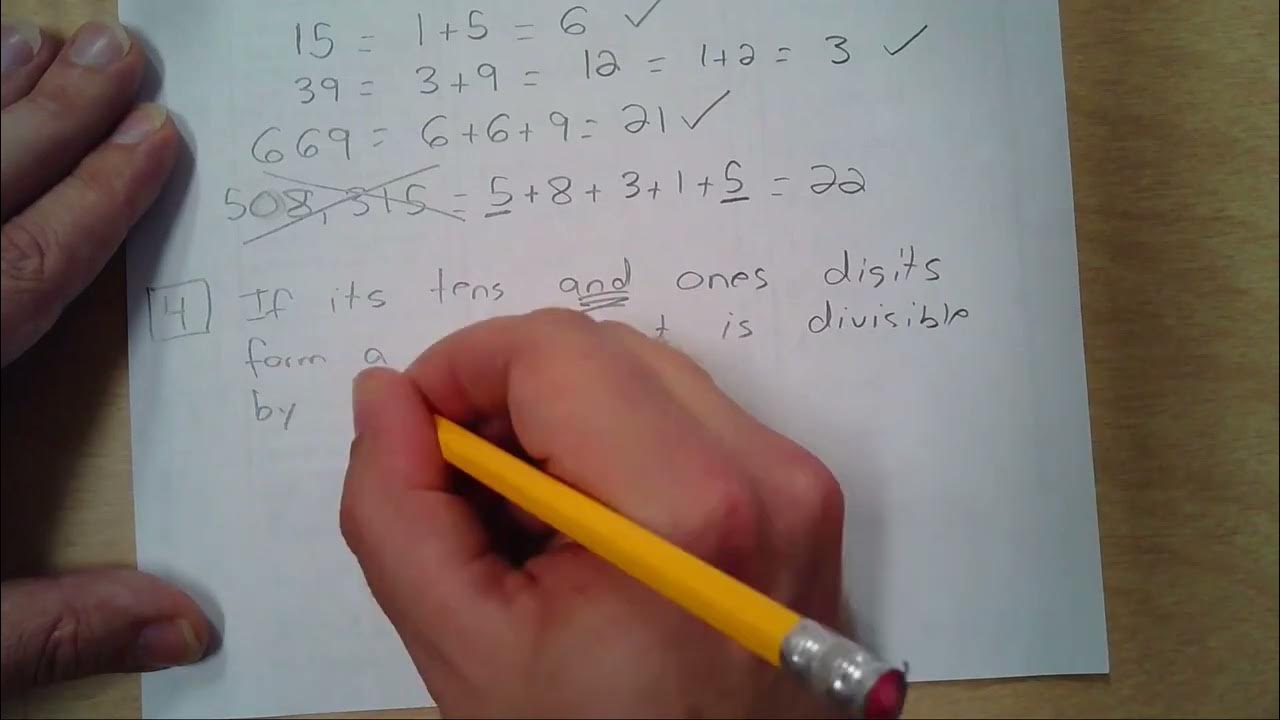 15 = 1+5 = 6 ✓
39 = 3+9 = 12 = 1+2 = 3 ✓
669 = 6+6+9 = 21 ✓
508,315 = 5+8+3+1+5 = 22
4 If its tens and ones digits
form a is divisible
by